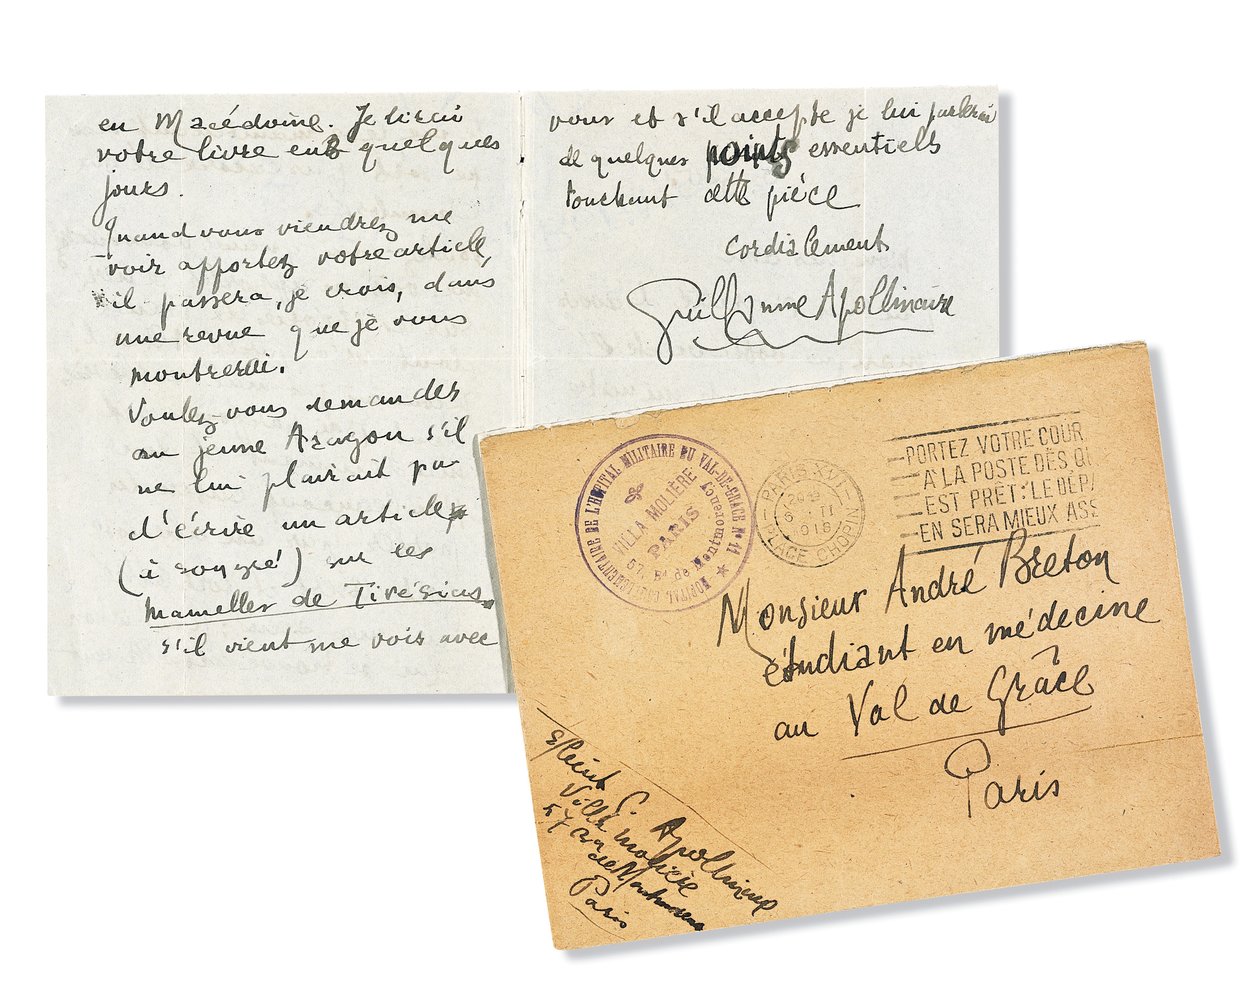 en Macédoine. Je lirai
votre livre en quelques
jours.
Quand vous viendrez me
voir apportez votre article,
il passera, je crois, dans
une revue que je vous
montrerai.
Voulez-vous demander
au jeune Aragon s'il
ne lui plairait pas
d'écrire un article
(i soigné) sur les
Mamelles de Tirésias,
s'il vient me voir avec
vous et s'il accepte je lui parlerai
de quelques points essentiels
touchant cette pièce
Cordialement
Guillaume Apollinaire
HOPITAL COMPLEMENTAIRE DE L'HÔPITAL MILITAIRE DU VAL-DE-GRACE N° 11
VILLA MOLIÈRE
PARIS
57, Bd de Montmorency
PARIS XVI
20
6 - II
1918
PLACE CHOPIN
PORTEZ VOTRE COUR
A LA POSTE DÈS QU
EST PRÊT: LE DÉPA
EN SERA MIEUX ASS
Monsieur André Breton
étudiant en médecine
au Val de Grâce
Paris
G. Apollinaire
Villa Molière
57
de Montmorency
Paris